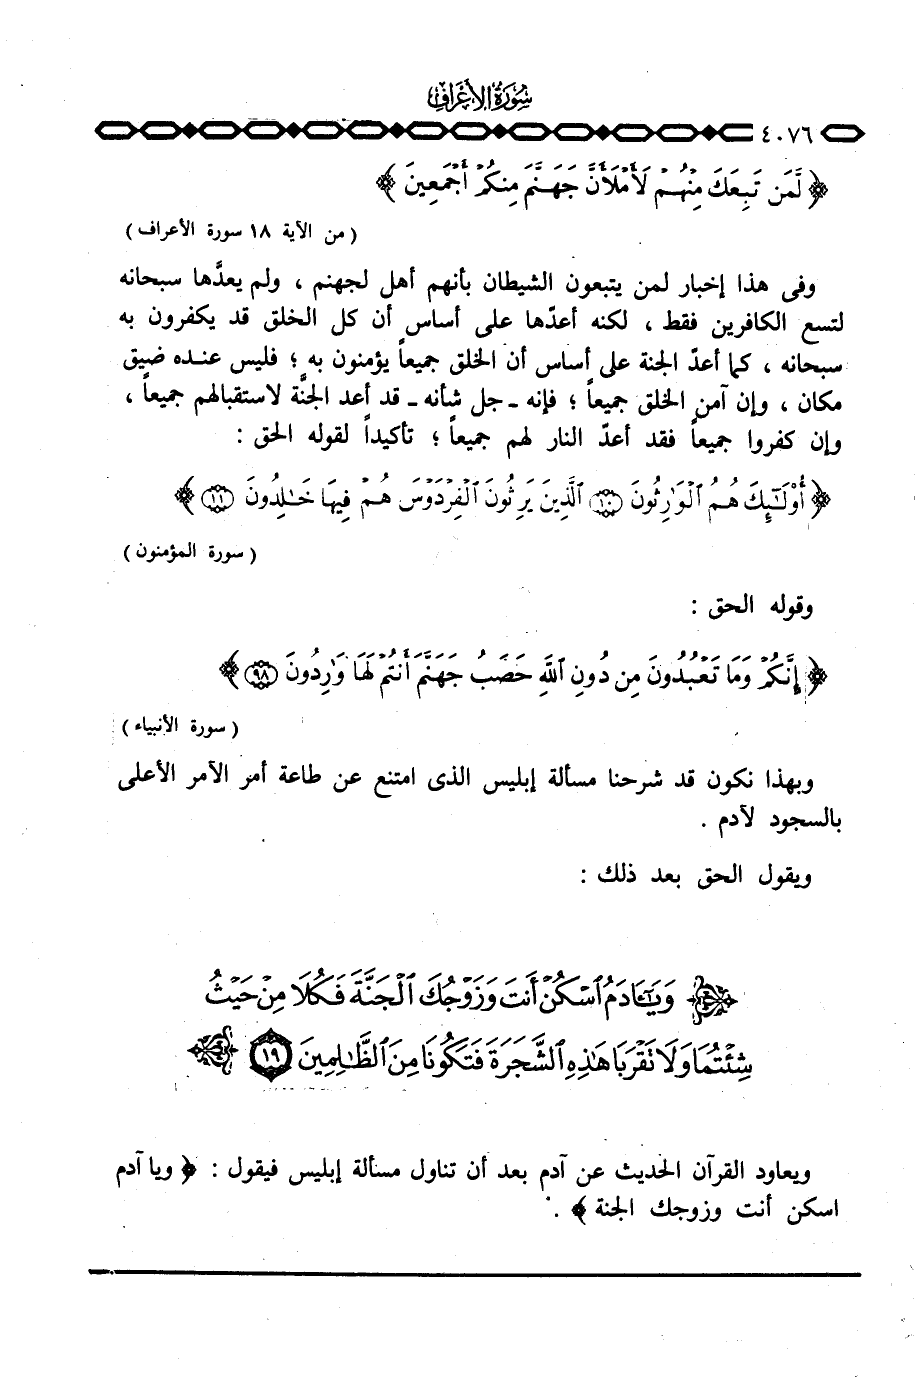 سُورَةُ الأَعْرَافِ
٤٠٧٦
﴿ لَّمَن تَبِعَكَ مِنْهُمْ لَأَمْلَأَنَّ جَهَنَّمَ مِنكُمْ أَجْمَعِينَ ﴾
( من الآية ١٨ سورة الأعراف )
وفى هذا إخبار لمن يتبعون الشيطان بأنهم أهل لجهنم ، ولم يعدَّها سبحانه
لتسع الكافرين فقط ، لكنه أعدّها على أساس أن كل الخلق قد يكفرون به
سبحانه ، كما أعدّ الجنة على أساس أن الخلق جميعاً يؤمنون به ؛ فليس عنده ضيق
مكان ، وإن آمن الخلق جميعاً ؛ فإنه ـ جل شأنه ـ قد أعد الجنَّة لاستقبالهم جميعاً ،
وإن كفروا جميعاً فقد أعدّ النار لهم جميعاً ؛ تأكيداً لقوله الحق :
﴿ أُوْلَٰٓئِكَ هُمُ ٱلْوَٰرِثُونَ ١٠ ٱلَّذِينَ يَرِثُونَ ٱلْفِرْدَوْسَ هُمْ فِيهَا خَٰلِدُونَ ١١ ﴾
( سورة المؤمنون )
وقوله الحق :
﴿ إِنَّكُمْ وَمَا تَعْبُدُونَ مِن دُونِ ٱللَّهِ حَصَبُ جَهَنَّمَ أَنتُمْ لَهَا وَٰرِدُونَ ٩٨ ﴾
( سورة الأنبياء )
وبهذا نكون قد شرحنا مسألة إبليس الذى امتنع عن طاعة أمر الآمر الأعلى
بالسجود لآدم .
ويقول الحق بعد ذلك :
وَيَٰٓـَٔادَمُ ٱسْكُنْ أَنتَ وَزَوْجُكَ ٱلْجَنَّةَ فَكُلَا مِنْ حَيْثُ
شِئْتُمَا وَلَا تَقْرَبَا هَٰذِهِ ٱلشَّجَرَةَ فَتَكُونَا مِنَ ٱلظَّٰلِمِينَ ١٩
ويعاود القرآن الحديث عن آدم بعد أن تناول مسألة إبليس فيقول : ﴿ ويا آدم
اسكن أنت وزوجك الجنة ﴾ .